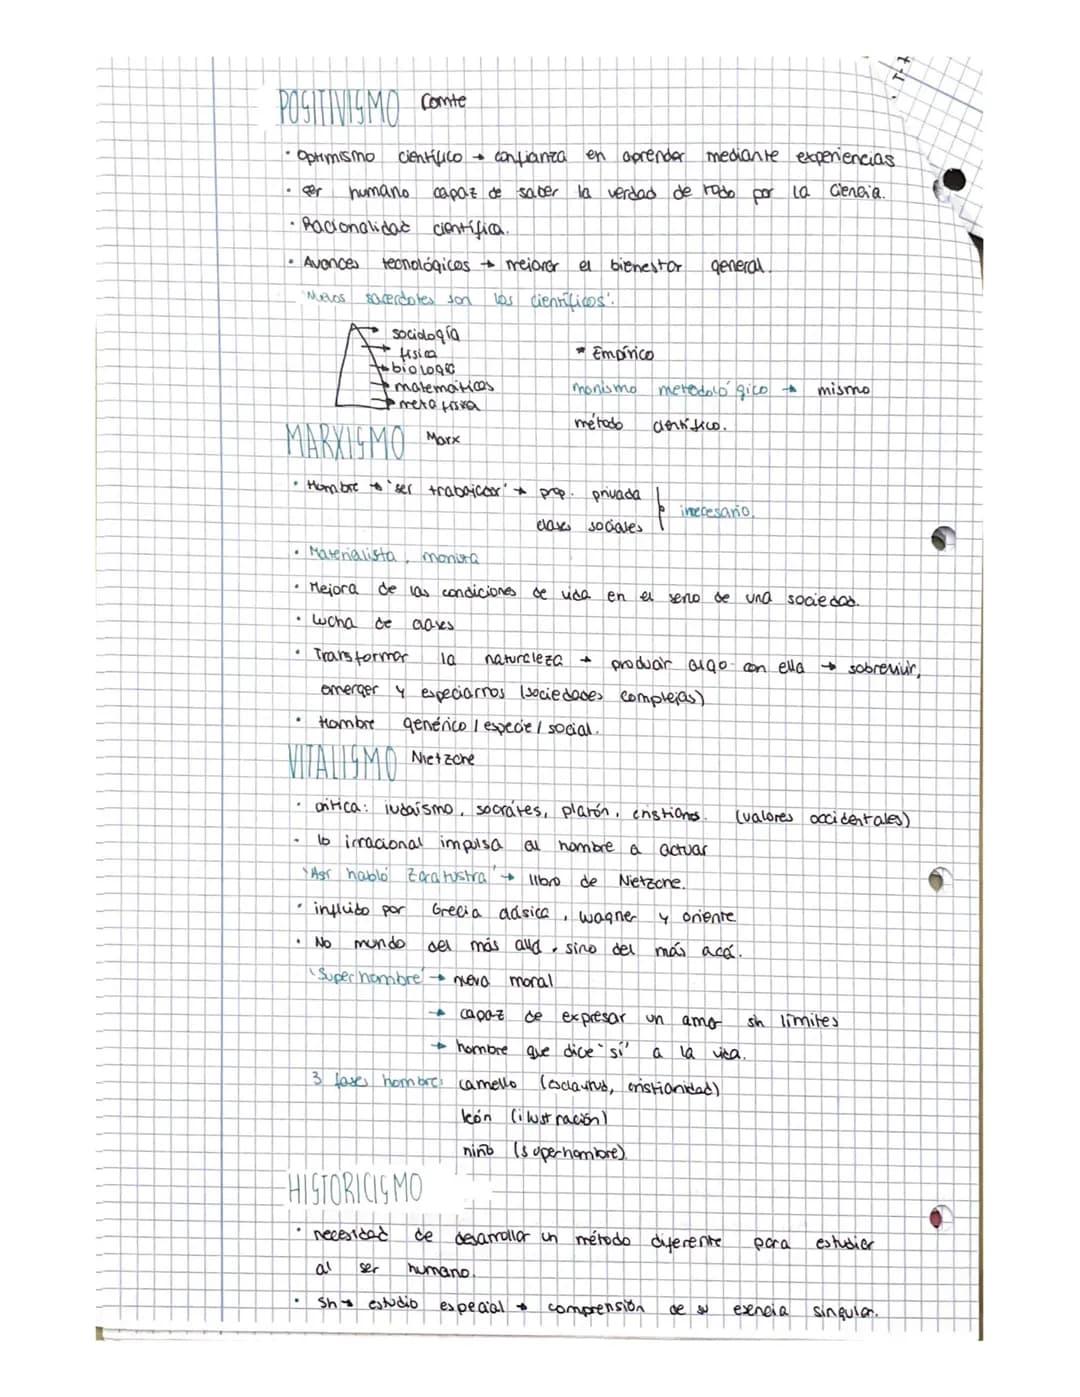 POSITIVISMO Comte
· Optimismo científico → confianza en aprender mediante experiencias
· ser humano capaz de saber la verdad de todo por la ciencia.
· Racionalidad científica.
· Avances tecnológicos → mejorar el bienestar general.
'Nuevos sacerdotes son los científicos'.
→ sociología
→ física
→ biología
→ matemáticas
→ metafísica
* Empírico
monismo metodológico → mismo
método científico.
MARXISMO Marx
· Hombre → 'ser trabajador' → prop. privada
clases sociales
innecesario.
· Materialista, monista
· Mejora de las condiciones de vida en el seno de una sociedad.
· Lucha de clases
· Transformar la naturaleza → producir algo con ella → sobrevivir,
emerger y especiarnos (sociedades complejas)
· Hombre genérico / especie / social.
VITALISMO Nietzche
· crítica: judaísmo, socrátes, platón, cristianos. (valores occidentales)
- lo irracional impulsa al hombre a actuar
'Así habló Zaratustra' → libro de Nietzche.
· influido por Grecia clásica, wagner y oriente
· No mundo del más allá, sino del más acá.
'Superhombre' → nueva moral
→ capaz de expresar un amor sin límites
→ hombre que dice "sí" a la vida.
3 fases hombre: camello (esclavitud, cristianidad)
león (ilustración)
niño (superhombre)
HISTORICISMO
· necesidad de desarrollar un método diferente para estudiar
al ser humano.
· Sh → estudio especial → comprensión de su esencia singular.